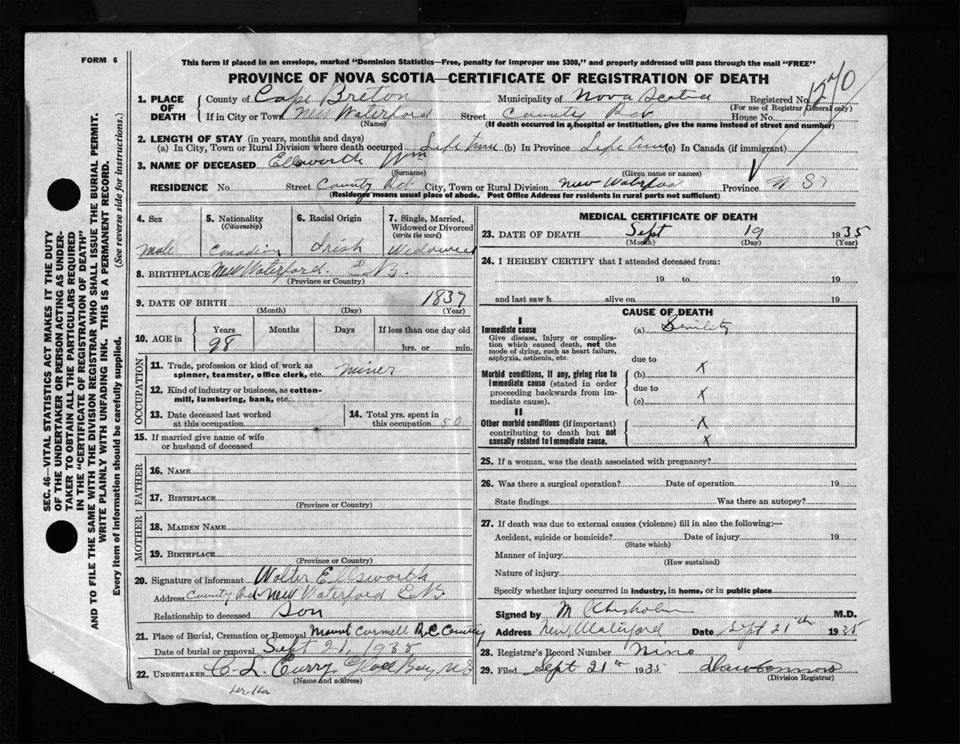 FORM 6
This form if placed in an envelope, marked "Dominion Statistics—Free, penalty for improper use $300," and properly addressed will pass through the mail "FREE"
PROVINCE OF NOVA SCOTIA—CERTIFICATE OF REGISTRATION OF DEATH
1. PLACE OF DEATH
County of Cape Breton Municipality of Nova Scotia Registered No.
(For use of Registrar General only)
If in City or Town New Waterford Street County House No.
(Name) (If death occurred in a hospital or institution, give the name instead of street and number)
2. LENGTH OF STAY (in years, months and days)
(a) In City, Town or Rural Division where death occurred Life time (b) In Province Life time (c) In Canada (if immigrant)
3. NAME OF DECEASED Ellsworth Wm
(Surname) (Given name or names)
RESIDENCE No. Street County City, Town or Rural Division New Waterford Province N S
(Residence means usual place of abode. Post Office Address for residents in rural parts not sufficient)
4. Sex
Male
5. Nationality
(Citizenship)
Canadian
6. Racial Origin
Irish
7. Single, Married, Widowed or Divorced
(write the word)
Widowed
8. BIRTHPLACE New Waterford. C.B.
(Province or Country)
9. DATE OF BIRTH 1837
(Month) (Day) (Year)
10. AGE in
Years Months Days If less than one day old
98 hrs. or min.
OCCUPATION
11. Trade, profession or kind of work as spinner, teamster, office clerk, etc. miner
12. Kind of industry or business, as cotton-mill, lumbering, bank, etc.
13. Date deceased last worked at this occupation
14. Total yrs. spent in this occupation 50
15. If married give name of wife or husband of deceased
FATHER
16. NAME
17. BIRTHPLACE
(Province or Country)
MOTHER
18. MAIDEN NAME
19. BIRTHPLACE
(Province or Country)
20. Signature of informant Walter Ellsworth
Address County New Waterford C.B
Relationship to deceased Son
21. Place of Burial, Cremation or Removal Mount Carmell R.C.
Date of burial or removal Sept 21, 1935
22. UNDERTAKER C. L. Curry Glace Bay, N S
(Name and address)
MEDICAL CERTIFICATE OF DEATH
23. DATE OF DEATH Sept 19 1935
(Month) (Day) (Year)
24. I HEREBY CERTIFY that I attended deceased from:
19 to 19
and last saw h alive on 19
CAUSE OF DEATH
I
Immediate cause (a) Senility
Give disease, injury or complication which caused death, not the mode of dying, such as heart failure, asphyxia, asthenia, etc.
due to
Morbid conditions, if any, giving rise to immediate cause (stated in order proceeding backwards from immediate cause).
(b) X
due to
(c) X
II
Other morbid conditions (if important) contributing to death but not causally related to immediate cause.
X
X
25. If a woman, was the death associated with pregnancy?
26. Was there a surgical operation? Date of operation 19
State findings Was there an autopsy?
27. If death was due to external causes (violence) fill in also the following:—
Accident, suicide or homicide? Date of injury 19
(State which)
Manner of injury
(How sustained)
Nature of injury
Specify whether injury occurred in industry, in home, or in public place
Signed by M Chisholm M.D.
Address New Waterford Date Sept 21th 1935
28. Registrar's Record Number Nine
29. Filed Sept 21 1935
(Division Registrar)
SEC. 46—VITAL STATISTICS ACT MAKES IT THE DUTY
OF THE UNDERTAKER OR PERSON ACTING AS UNDER-
TAKER TO OBTAIN ALL THE PARTICULARS REQUIRED
IN THE "CERTIFICATE OF REGISTRATION OF DEATH"
AND TO FILE THE SAME WITH THE DIVISION REGISTRAR WHO SHALL ISSUE THE BURIAL PERMIT.
WRITE PLAINLY WITH UNFADING INK. THIS IS A PERMANENT RECORD.
Every item of information should be carefully supplied. (See reverse side for instructions.)